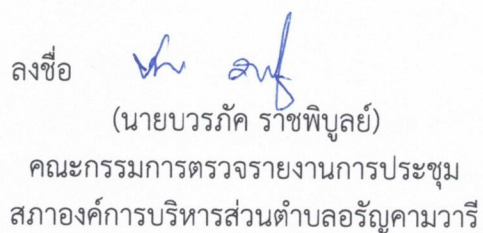 ลงชื่อ
(นายบวรภัค ราชพิบูลย์)
คณะกรรมการตรวจรายงานการประชุม
สภาองค์การบริหารส่วนตำบลอรัญคามวารี